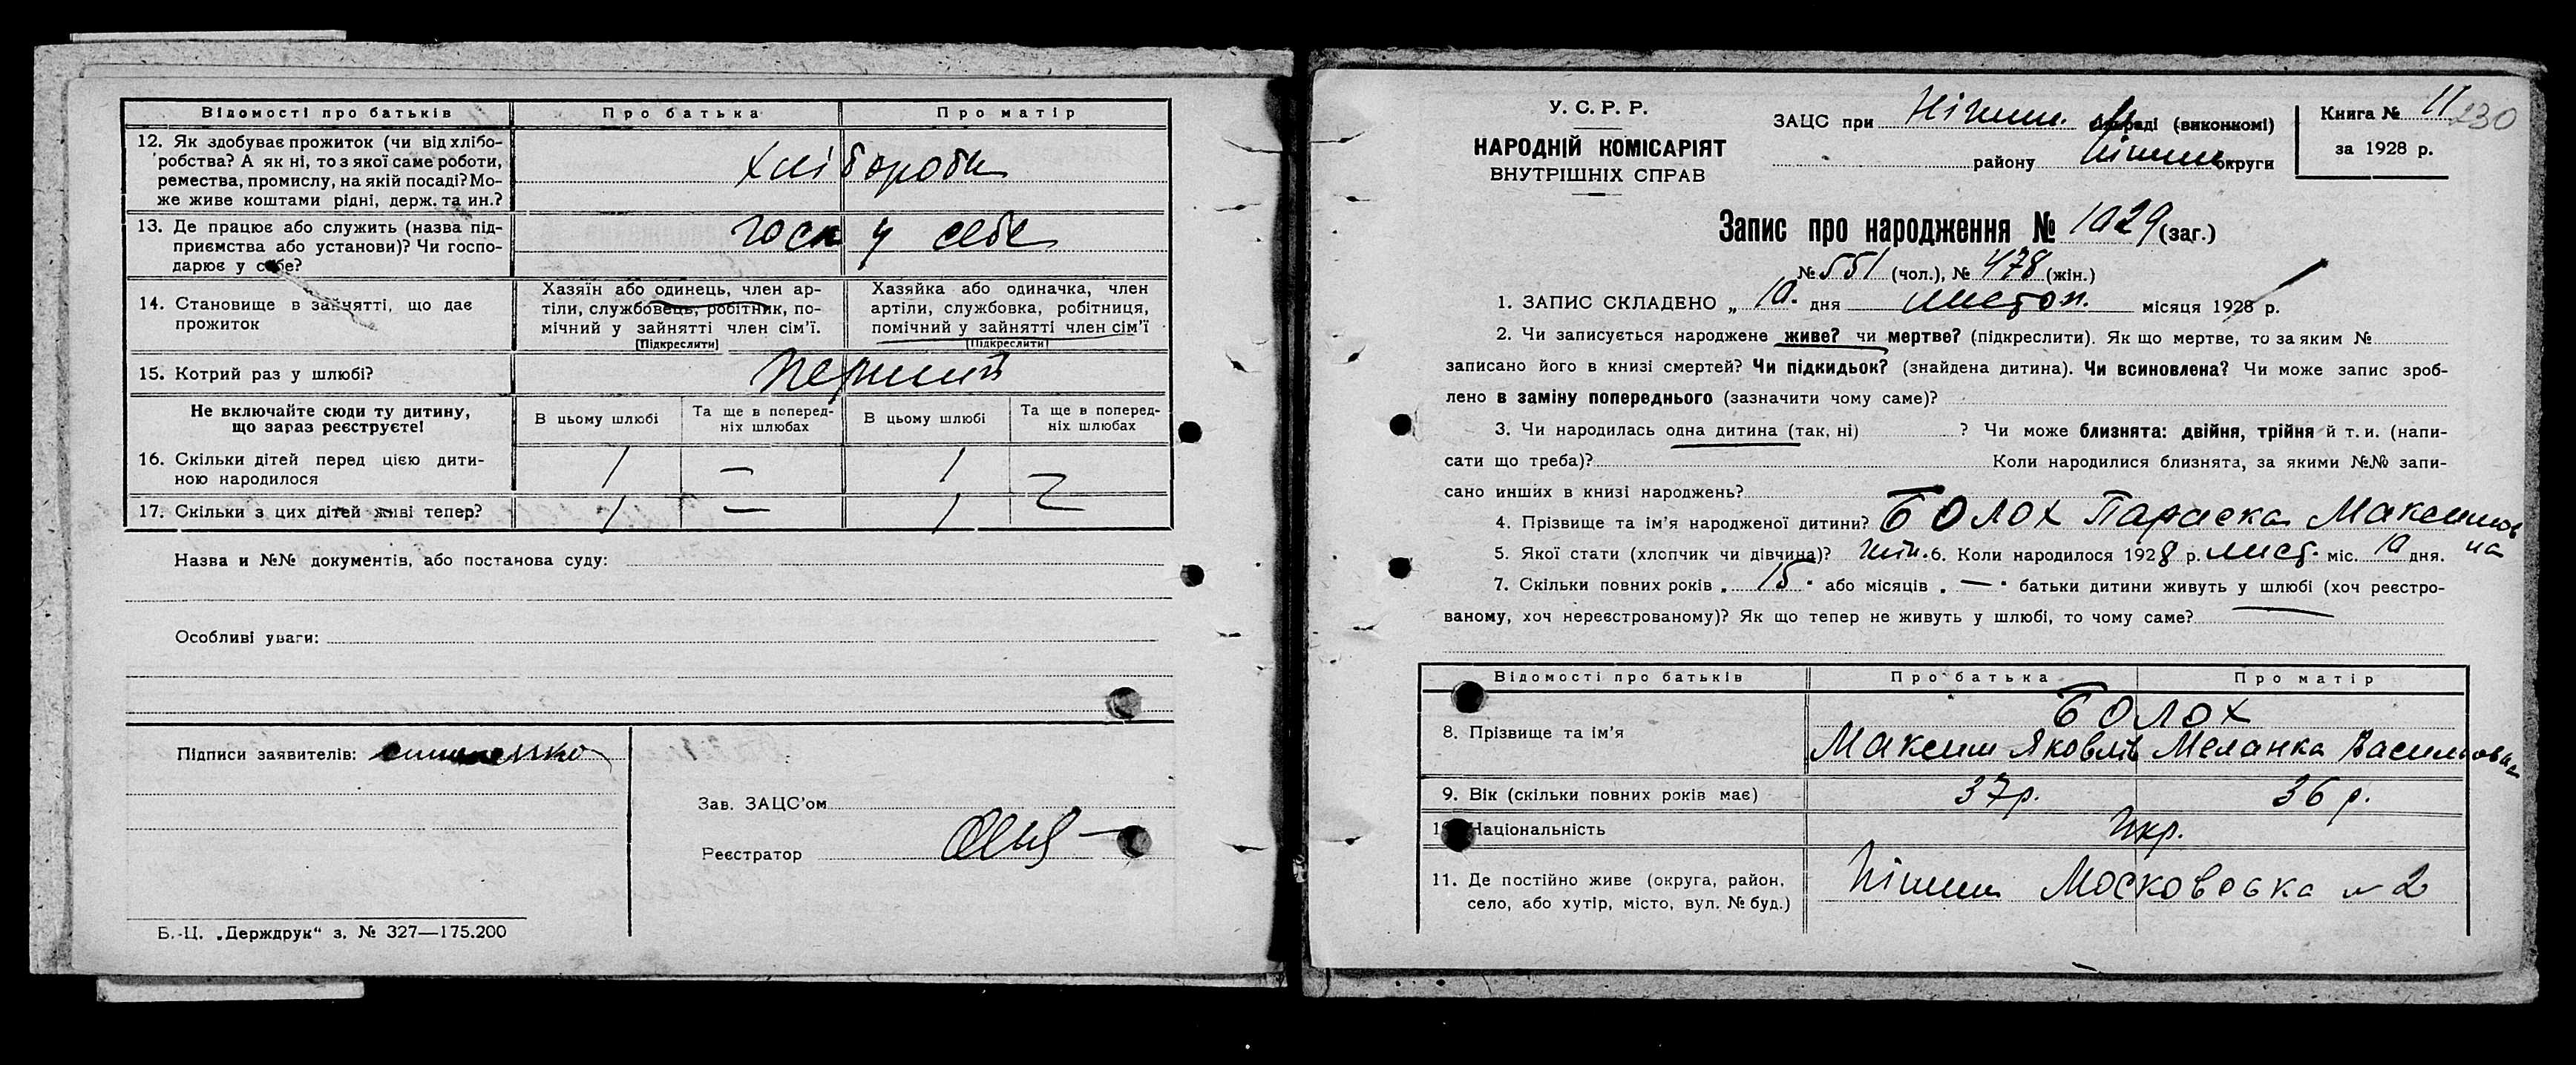 Відомості про батьків Про батька Про матір
12. Як здобуває прожиток (чи від хлібо-
робства? А як ні, то з якої саме роботи,
ремества, промислу, на якій посаді? Мо-
же живе коштами рідні, держ. та ин.?
хлібороби
13. Де працює або служить (назва під-
приємства або установи)? Чи госпо-
дарює у себе?
госп у себе
14. Становище в зайнятті, що дає
прожиток
Хазяїн або одинець, член ар-
тіли, службовець, робітник, по-
мічний у зайнятті член сім'ї.
[Підкреслити]
Хазяйка або одиначка, член
артіли, службовка, робітниця,
помічний у зайнятті член сім'ї
[Підкреслити]
15. Котрий раз у шлюбі? перший
Не включайте сюди ту дитину,
що зараз реєструєте!
В цьому шлюбі Та ще в поперед-
ніх шлюбах В цьому шлюбі Та ще в поперед-
ніх шлюбах
16. Скільки дітей перед цією дити-
ною народилося 1 — 1 —
17. Скільки з цих дітей живі тепер? 1 — 1 —
Назва и №№ документів, або постанова суду:
Особливі уваги:
Підписи заявителів:
Зав. ЗАЦС'ом
Реєстратор
Б.-Ц. „Держдрук“ з. № 327—175.200
У. С. Р. Р.
НАРОДНІЙ КОМІСАРІЯТ
ВНУТРІШНІХ СПРАВ
ЗАЦС при Ніжин. міськраді (виконкомі)
району Ніжин округи
Книга № 11 230
за 1928 р.
Запис про народження № 1029 (заг.)
№ 551 (чол.), № 478 (жін.)
1. ЗАПИС СКЛАДЕНО „ 10. дня листоп. місяця 1928 р.
2. Чи записується народжене живе? чи мертве? (підкреслити). Як що мертве, то за яким №
записано його в книзі смертей? Чи підкидьок? (знайдена дитина). Чи всиновлена? Чи може запис зроб-
лено в заміну попереднього (зазначити чому саме)?
3. Чи народилась одна дитина (так, ні) ? Чи може близнята: двійня, трійня й т. и. (напи-
сати що треба)? Коли народилися близнята, за якими №№ запи-
сано инших в книзі народжень?
4. Прізвище та ім'я народженої дитини? БОЛОХ Параска Максимов
на
5. Якої стати (хлопчик чи дівчина)? жін. 6. Коли народилося 1928 р. лист. міс. 10 дня.
7. Скільки повних років „ 15 " або місяців „ — " батьки дитини живуть у шлюбі (хоч реєстро-
ваному, хоч нереєстрованому)? Як що тепер не живуть у шлюбі, то чому саме?
Відомості про батьків Про батька Про матір
БОЛОХ
8. Прізвище та ім'я Максим Яковлів Меланка Васильовна
9. Вік (скільки повних років має) 37р. 36 р.
10. Національність Укр.
11. Де постійно живе (округа, район,
село, або хутір, місто, вул. № буд.)
Ніжин Московська № 2